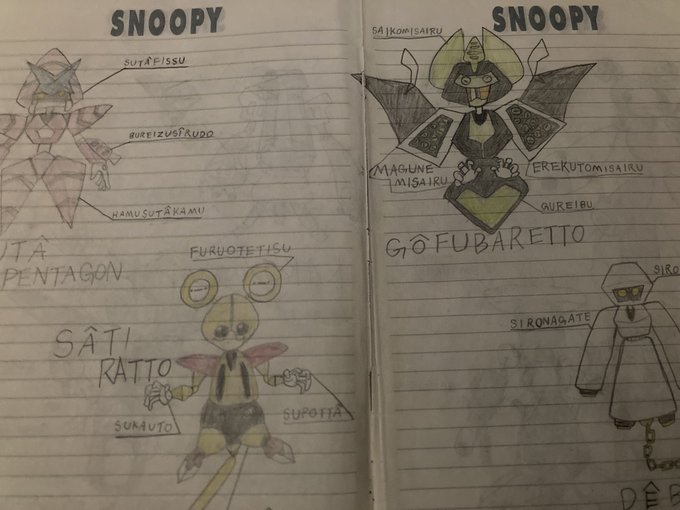 SNOOPY
SUTÂFISSU
BUREIZUSÎRUDO
HAMUSUTÂKAMU
UTÂ
PENTAGON
FURUOTETISU
SÂTI
RATTO
SUKAUTO
SUPOTTÂ
SNOOPY
SAIKOMISAIRU
MAGUNE
MISAIRU
EREKUTOMISAIRU
GUREIBU
GÔFUBARETTO
SIRO
SIRONAGATE
DÊB